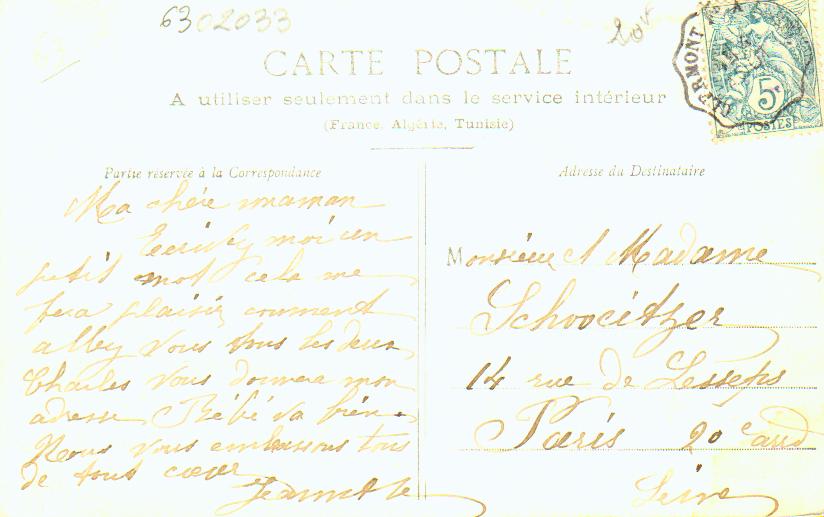 6302033
20f
CARTE POSTALE
A utiliser seulement dans le service intérieur
(France, Algérie, Tunisie)
CLERMONT
5
POSTES
Partie réservée à la Correspondance
Ma chère maman
Ecrivez moi un
petit mot cela me
fera plaisir comment
allez vous tous les deux
Charles vous donnera mon
adresse Bébé va bien
Nous vous embrassons tous
de tout cœur
Jeannette
Adresse du Destinataire
Monsieur et Madame
Schoocitzer
14 rue de Lesseps
Paris 20e arrd
Seine